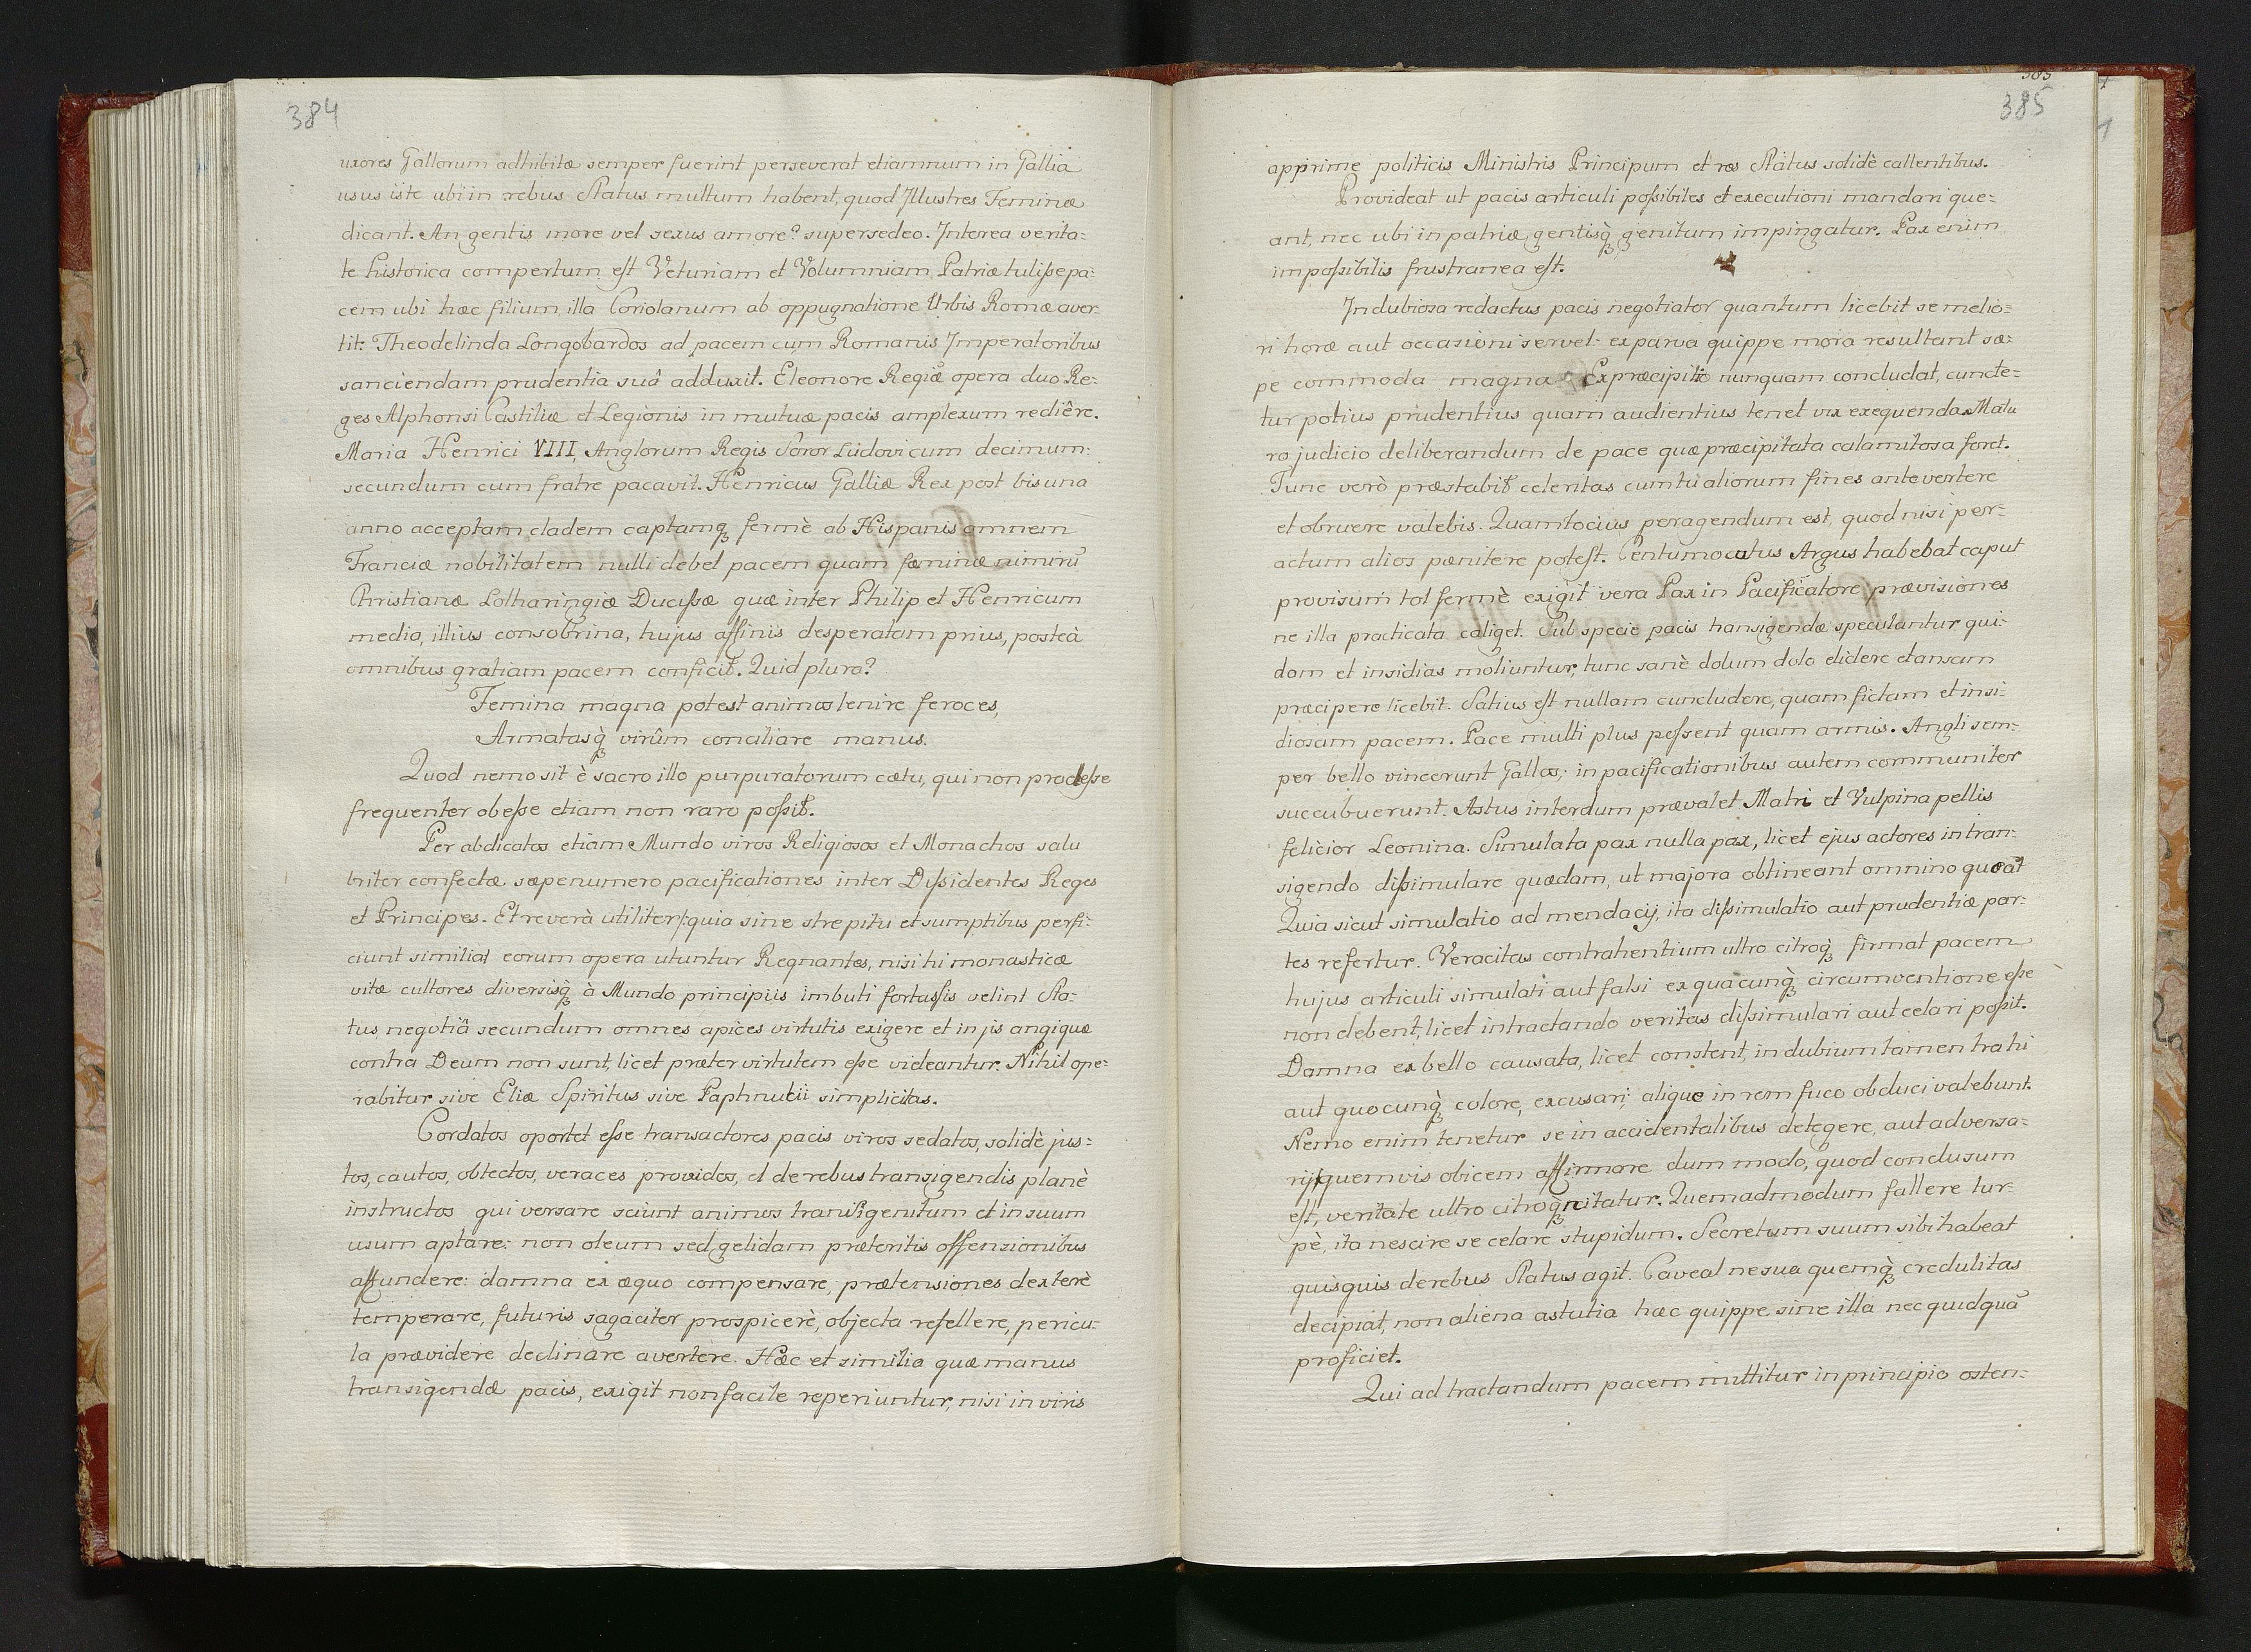 384
uxores Gallorum adhibitæ semper fuerint perseverat etiamnum in Gallia
usus iste ubi in rebus Status multum habent, quod Jllustres Feminæ
dicant. An gentis more vel sexus amore? supersedeo. Jnterea verita=
te historica compertum est Veturiam et Volumniam Patriæ tulisse pa=
cem ubi hæc filium, illa Coriolanum ab oppugnatione Urbis Romæ aver=
tit: Theodelinda Longobardos ad pacem cum Romanis Jmperatoribus
sanciendam prudentia suâ adduxit. Eleonore Regiæ opera duo Re=
ges Alphonsi Castiliæ et Legionis in mutuæ pacis amplexum rediêre.
Maria Henrici VIII, Anglorum Regis Soror Ludovicum decimum=
secundum cum fratre pacavit. Henricus Galliæ Rex post bis una
anno acceptam cladem captamq̀ȝ fermè ab Hispanis omnem
Franciæ nobilitatem nulli debet pacem quam fæminæ nimirū
Christianæ Lotharingiæ Ducissæ quæ inter Philip et Henricum
media, illius consobrina, hujus affinis desperatam prius, posteà
omnibus gratiam pacem conficit. Quid plura?
Femina magna potest animos lenire feroces,
Armatasq̀ȝ virûm conciliare manus.
Quod nemo sit è sacro illo purpuratorum cætu, qui non prodesse
frequenter obesse etiam non raro possit.
Per abdicatos etiam Mundo viros Religiosos et Monachos salu
briter confectæ sæpenumero pacificationes inter Dissidentes Reges
et Principes. Et reverà utiliter /: quia sine strepitu et sumptibus perfi=
ciunt similia/ eorum opera utuntur Regnantes, nisi hi monasticæ
vitæ cultores diversisq̀ȝ à Mundo principiis imbuti fortassis velint Sta=
tus negotiā secundum omnes apices virtutis exigere et in jis angi quæ
contra Deum non sunt, licet præter virtutem esse videantur. Nihil ope=
rabitur sive Eliæ Spiritus sive Paphnutii simplicitas.
Cordatos oportet esse transactores pacis viros sedatos, solidè jus=
tos, cautos, obtectos, veraces providos, et de rebus transigendis planè
instructos qui versare sciunt animos transigentum et in suum
usum aptare: non oleum sed gelidam præteritis offensionibus
affundere: damna ex æquo compensare, prætensiones dexterè
temperare, futuris sagaciter prospicerè, objecta refellere, pericu=
la prævidere declinare avertere. Hæc et similia quæ manus
transigendæ pacis, exigit non facile reperiuntur, nisi in viris
385
385
apprime politicis Ministris Principum et res Status solidè callentibus.
Provideat ut pacis articuli possibiles et executioni mandari que=
ant, nec ubi in patriæ gentisq̀ȝ genitum impingatur. Pax enim
impossibilis frustranea est.
Jn dubiosa redactus pacis negotiator quantum licebit se melio=
ri horæ aut occasioni servet: ex parva quippe mora resultant sæ=
pe commoda magna Ex præcipitio nunquam concludat, cuncte=
tur potius prudentius quam audientius tenet vix exequenda. Matu
ro judicio deliberandum de pace quæ præcipitata calamitosa foret.
Tunc verò præstabit celeritas cum tù aliorum fines antevertere
et obruere valebis. Quamtocius peragendum est, quod nisi per=
actum alios pænitere potest. Centumocutus Argus habebat caput
provisum tot fermè exigit vera Pax in Pacificatore prævisiones
ne illa practicata caliget. Sub specie pacis transigendæ speculantur qui=
dam et insidias moliuntur, tunc sanè dolum dolo elidere et ansam
præcipere licebit. Satius est nullam cuncludere, quam fictam et insi=
diosam pacem. Pace multi plus possent quam armis. Angli sem=
per bello vincerunt Gallos; in pacificationibus autem communiter
succubuerunt. Astus interdum prævalet Matri et Vulpina pellis
felicior Leonina. Simulata pax nulla pax, licet ejus actores in tran=
sigendo dissimulare quædam, ut majora obtineant omnino queāt
Quia sicut simulatio ad mendacij, ita dissimulatio aut prudentiæ par=
tes refertur. Veracitas contrahentium ultro citroq̀ȝ firmat pacem
hujus articuli simulati aut falsi ex quacunq̀ȝ circumventione esse
non debent, licet in tractando veritas dissimulari aut celari possit.
Damna ex bello causata, licet constent, in dubium tamen trahi
aut quocunq̀ȝ colore, excusari; alique in rem fuco obduci valebunt.
Nemo enim tenetur se in accidentalibus detegere, aut adversa=
rij quemvis obicem affirmare dum modo, quod conclusum
est, veritate ultro citroq̀ȝ nitatur. Quemadmodum fallere tur=
pè, ita nescire se celare stupidum. Secretum suum sibi habeat
quisquis de rebus Status agit. Caveat ne sua quemq̀ȝ credulitas
decipiat, non aliena astutia hæc quippe sine illa nec quidquā
proficiet.
Qui ad tractandum pacem mittitur in principio osten=